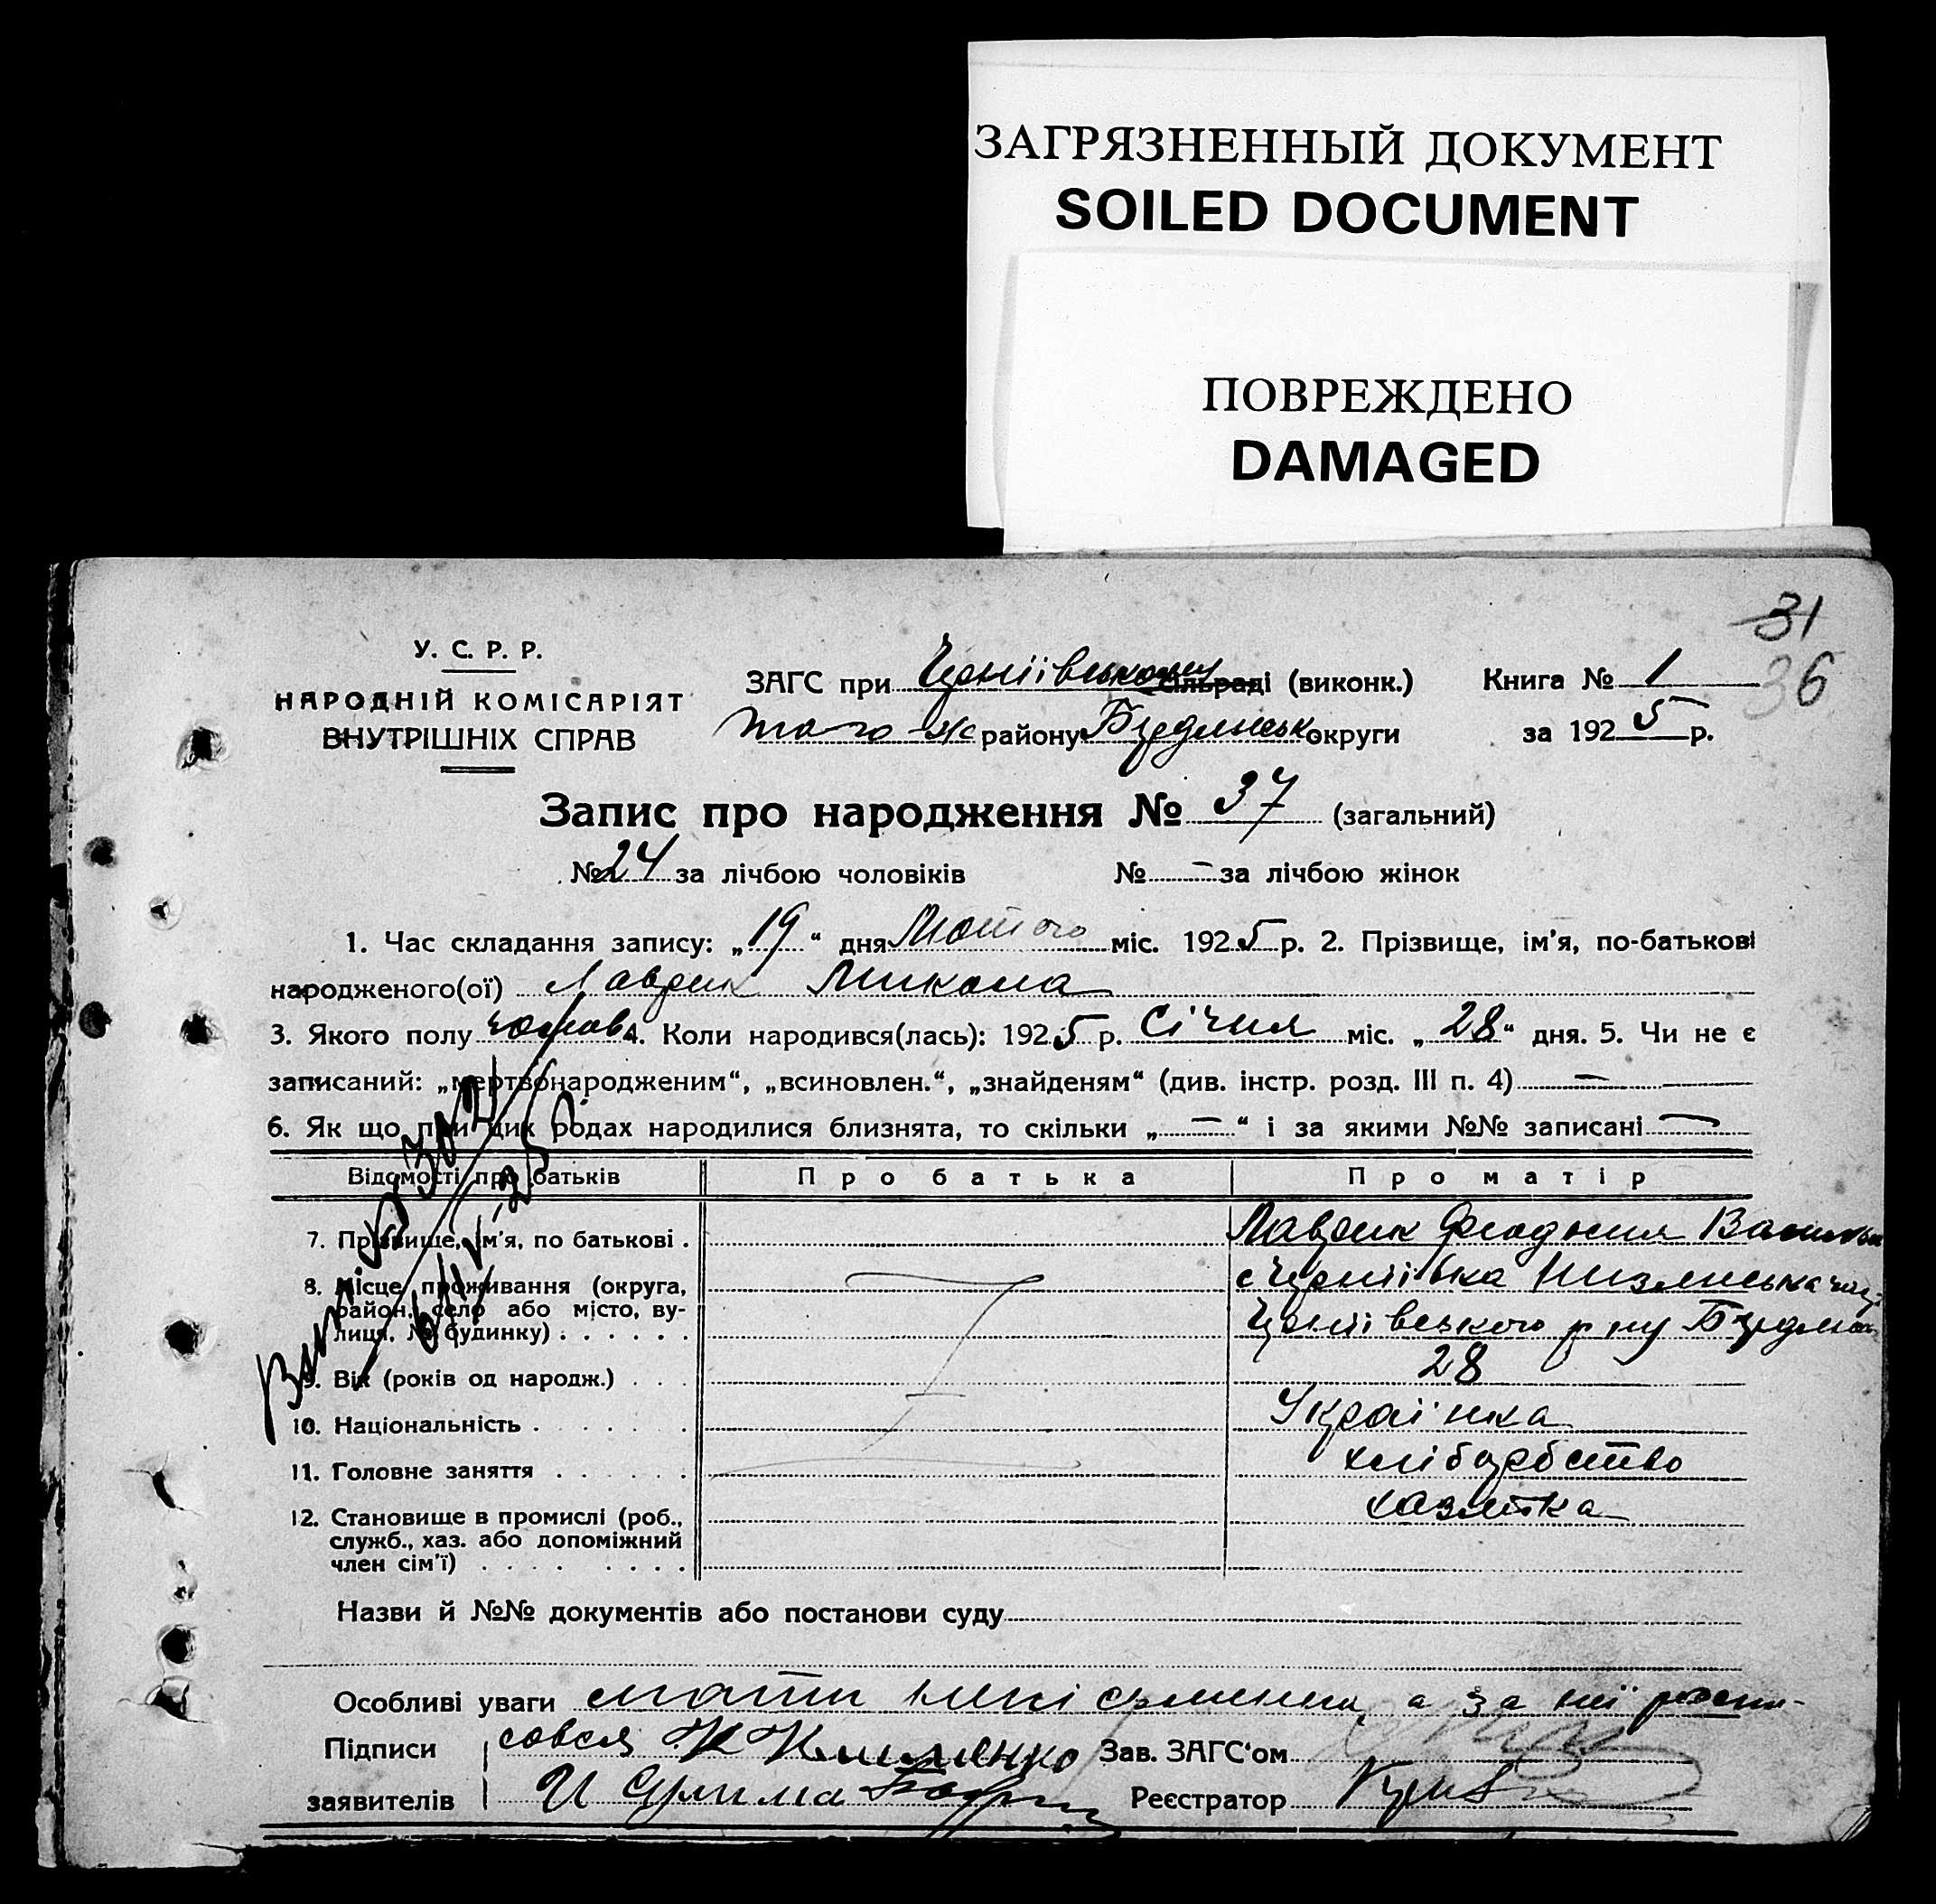 ЗАГРЯЗНЕННЫЙ ДОКУМЕНТ
SOILED DOCUMENT
ПОВРЕЖДЕНО
DAMAGED
31
36
У. С. Р. Р.
НАРОДНІЙ КОМІСАРІЯТ
ВНУТРІШНІХ СПРАВ
ЗАГС при сільраді (виконк.) Книга № 1
того ж району округи за 1925 р.
Запис про народження № 37 (загальний)
№ 24 за лічбою чоловіків № — за лічбою жінок
1. Час складання запису: „19“ дня Лютого міс. 1925 р. 2. Прізвище, ім'я, по-батькові
народженого(ої) Лаврик Микола
3. Якого полу чолов. 4. Коли народився(лась): 1925 р. Січня міс. „28“ дня. 5. Чи не є
записаний: „мертвонародженим“, „всиновлен.“, „знайденям“ (див. інстр. розд. III п. 4) —
6. Як що при цих родах народилися близнята, то скільки „—“ і за якими №№ записані —
Відомості про батьків Про батька Про матір
7. Прізвище, ім'я, по батькові . Лаврик
8. Місце проживання (округа,
район, село або місто, ву-
лиця, № будинку) . . . . . .
9. Вік (років од народж.) . . . 28
10. Національність . . . . . . Українка
11. Головне заняття . . . . . хліборобство
12. Становище в промислі (роб.,
служб., хаз. або допоміжний
член сім'ї) . . . . . . . . хазяйка
Назви й №№ документів або постанови суду
Особливі уваги мати а за неї розпи-
Підписи совся К Клименко Зав. ЗАГС'ом
заявителів И Реєстратор